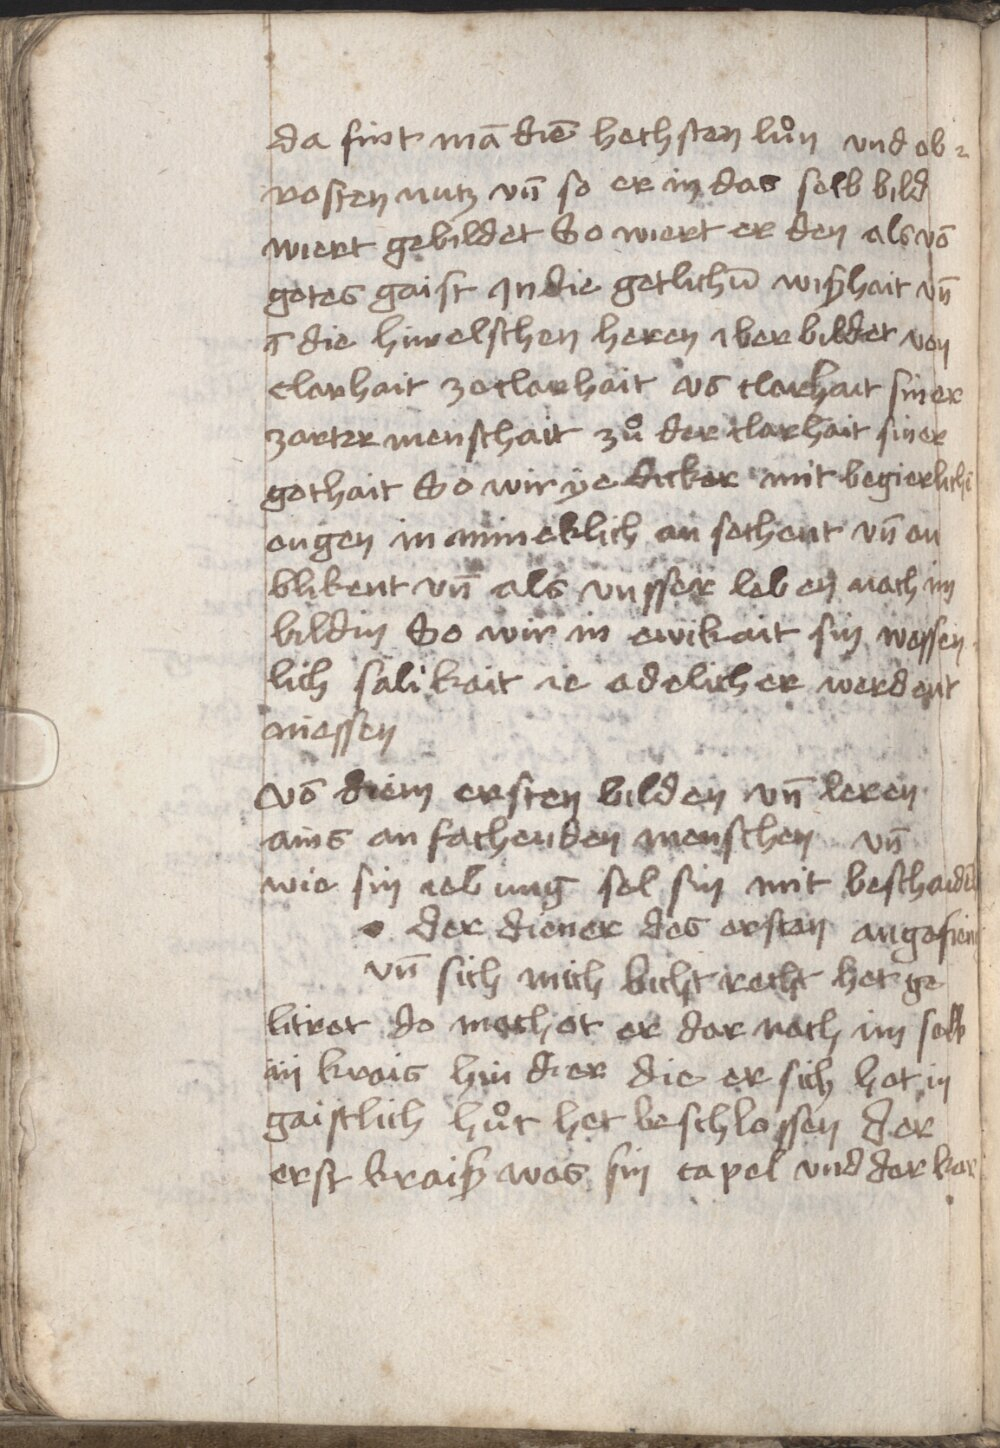 da fint mā diē hechsten luͦn vnd ob
rosten nutz vn̄ so er in das selb bild
wiert gebildet So wiert er den als vō
gotes gaist In die getlichū wißhait vn̄
die himelschen heren iber bildet von
clarhait ze clarhait vs clarhait siner
zarter menschait zuͦ der clarhait siner
gothait So wir ye dicker mit begierlichē
ougen in mineklich an sechent vn̄ an
blikent vn̄ als vnsser leben nach im
bildin So wir in ewikait sin wessen
lich sälikait ie adelicher werdent
niessen
Vō diem ersten bilden vn̄ leren
ains an fachenden menschen vn̄
wie sin iebung sol sin mit beschaidē
der diener des ersten angefieng
vn̄ sich mich bicht recht het ge
litret do machet er dar nach im selb
iij krais hin dier die er sich het in
gaistlich huͦt het beschlossen Der
erst kraiß was sin capel vnd der kor